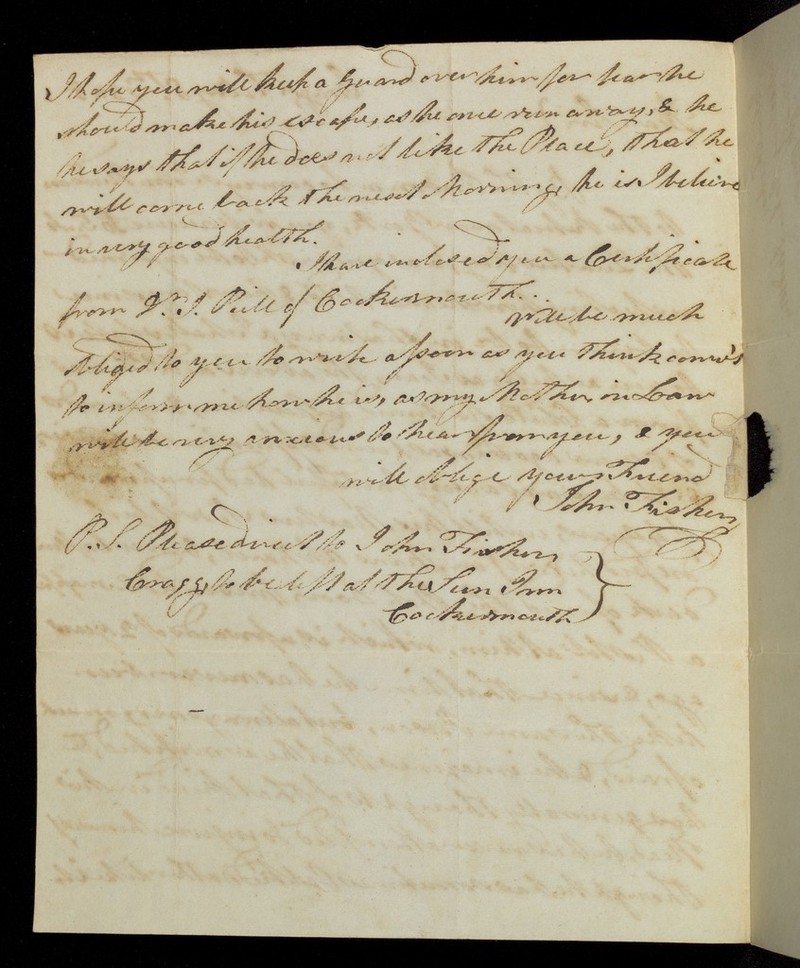 I hope you will keep a Guard over him for fear he
should make his escape, as he once run away, & he
he says that if he does not like the Place, that he
will come back the next Morning, he is I believe
in very good health.
I have inclosed you a Certificate
from Dr. I. Peill of Cockermouth.
Will be much
obliged to you to write as soon as you think
to inform me how he is, as my Mother in Law
will be very anxious to hear from you, & you
will oblige your Friend
John Fisher
P.S. Please direct to John Fisher
Cragg, to be left at the Sun Inn
Cockermouth